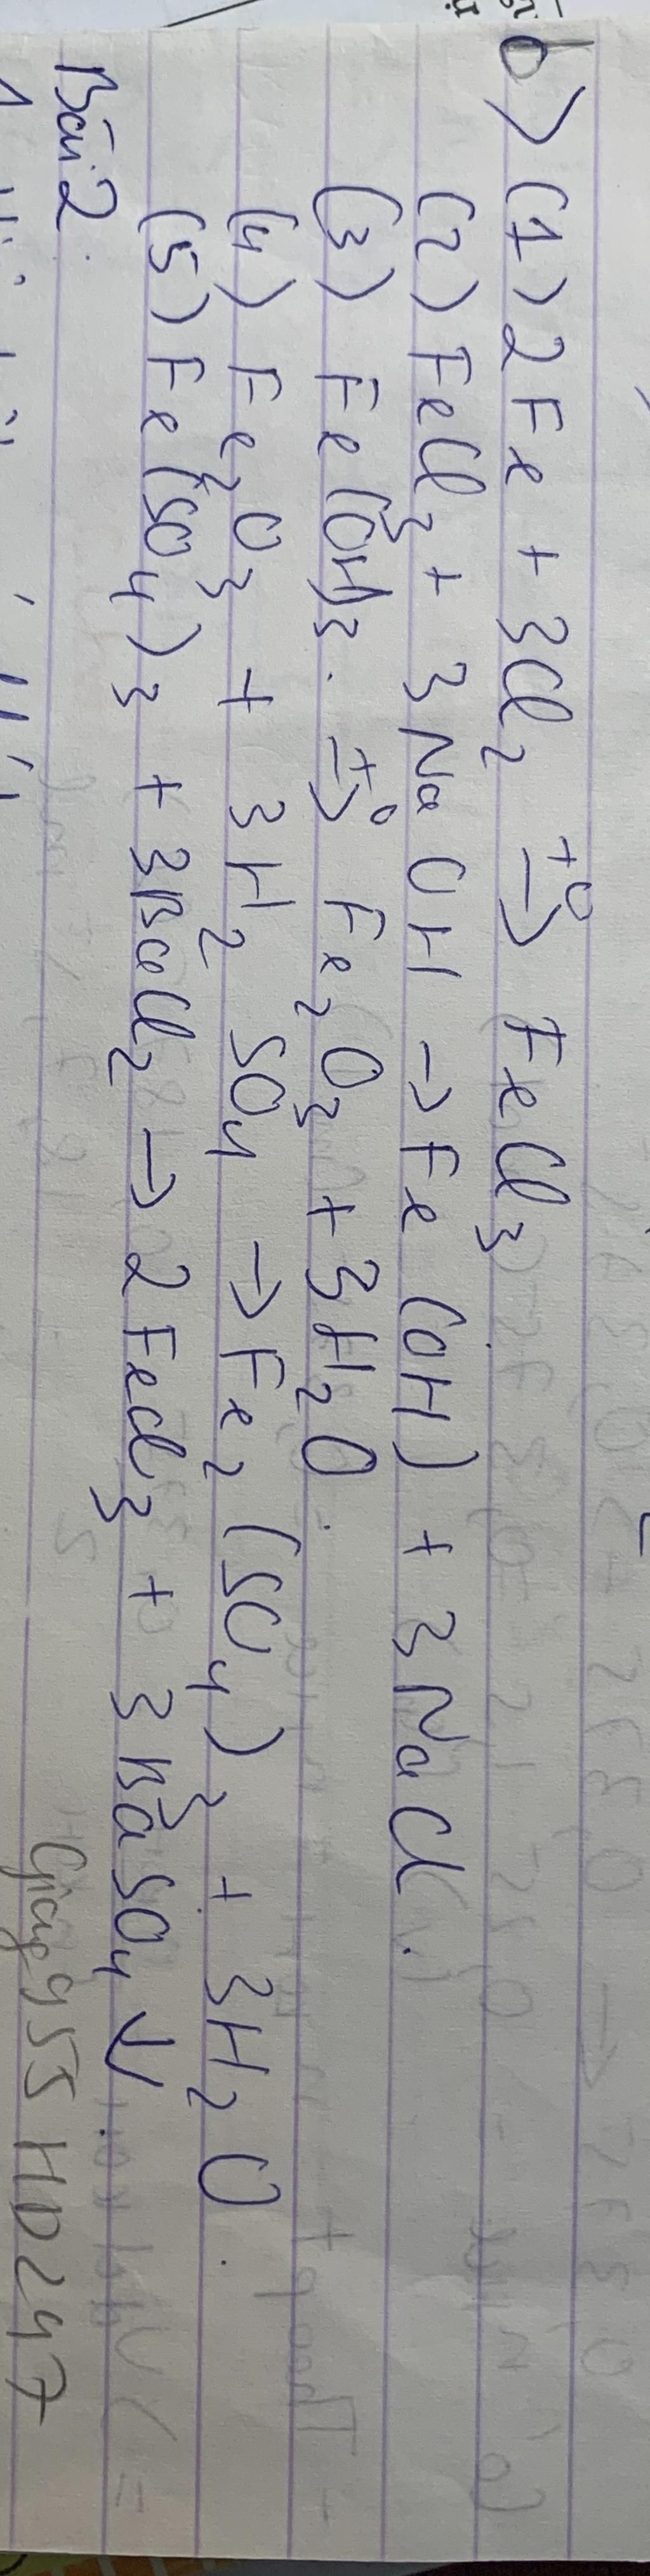 b) (1) 2Fe + 3Cl2 t°→ FeCl3
(2) FeCl3 + 3NaOH → Fe(OH) + 3NaCl.
(3) Fe(OH)3. t°→ Fe2O3 + 3H2O.
(4) Fe2O3 + 3H2SO4 → Fe2(SO4)3 + 3H2O.
(5) Fe(SO4)3 + 3BaCl2 → 2FeCl3 + 3BaSO4↓.
Bài 2.
Giang 955 HD247